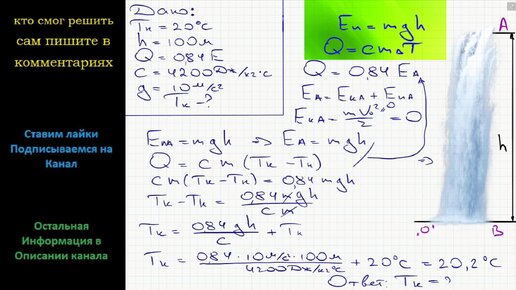 кто смог решить
сам пишите в
комментариях
Ставим лайки
Подписываемся на
Канал
Остальная
Информация в
Описании канала
Дано:
Tн = 20°C
h = 100м
Q = 0,84E
c = 4200Дж/кг°C
g = 10м/с²
Tк - ?
Eп = mgh
Q = cmΔT
Q = 0,84 EA
EA = EкA + EпA
EкA = mV₀²/2 = 0
EпA = mgh => EA = mgh
Q = cm (Tк - Tн)
cm (Tк - Tн) = 0,84 mgh
Tк - Tн = 0,84mgh/cm
Tк = 0,84gh/c + Tн
Tк = 0,84·10м/с²·100м/4200Дж/кг°C + 20°C = 20,2°C
Ответ: Tк = ?
A
h
"0"
B